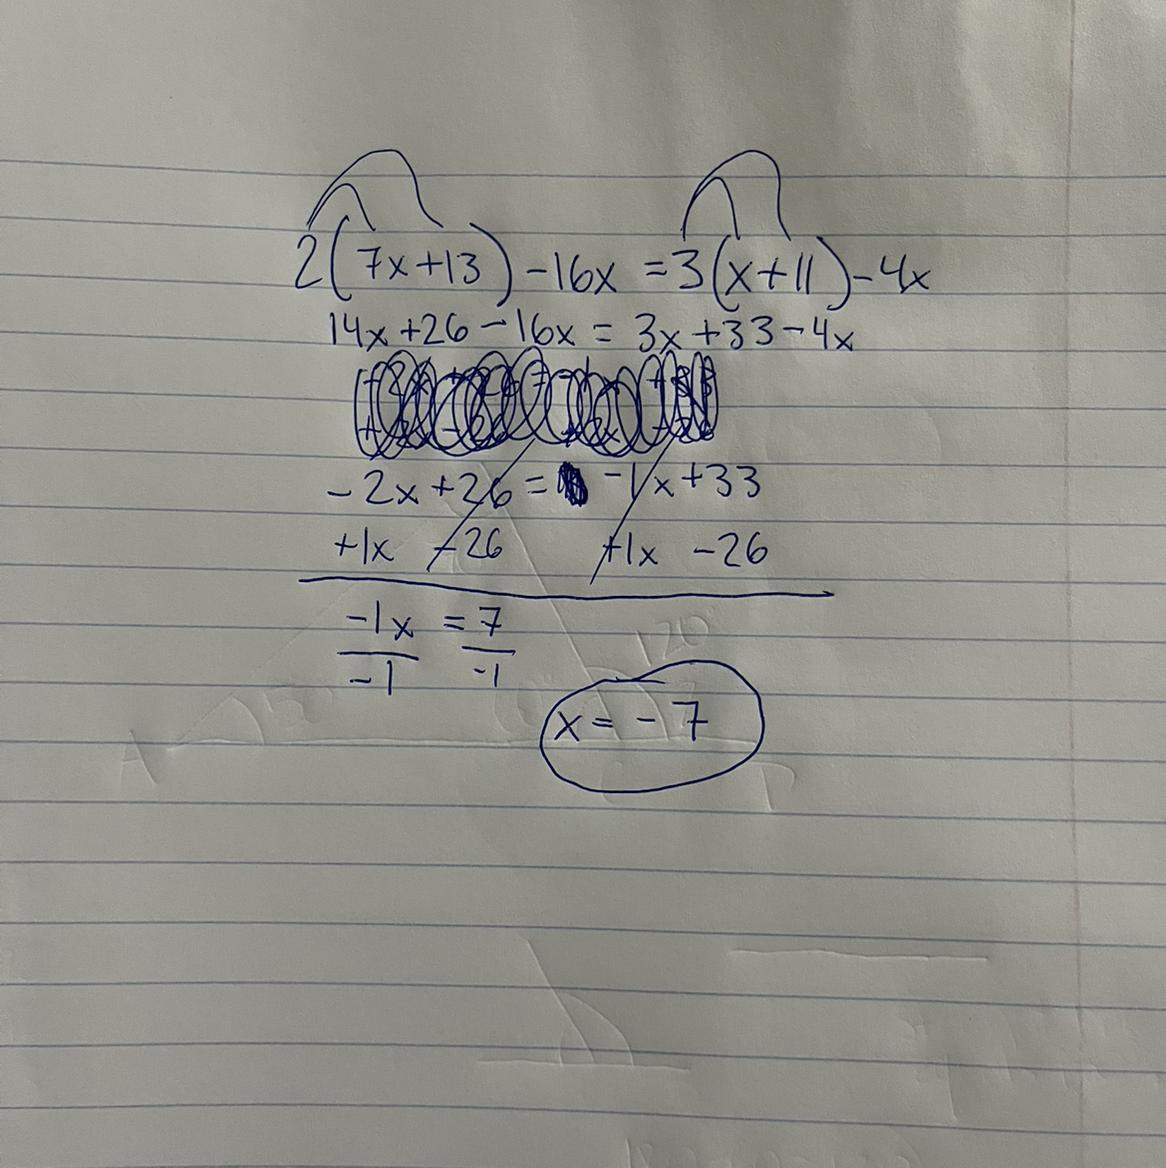 2(7x+13)-16x=3(x+11)-4x
14x+26-16x=3x+33-4x
-2x+26= -1x+33
+1x -26 +1x -26
-1x = 7
-1 -1
x=-7
120°
A